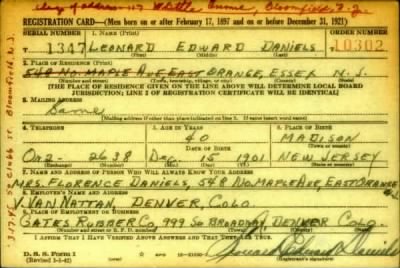 Bloomfield, N.J.
REGISTRATION CARD—(Men born on or after February 17, 1897 and on or before December 31, 1921)
SERIAL NUMBER 1. NAME (Print) ORDER NUMBER
1347 LEONARD EDWARD DANIELS 10302
2. PLACE OF RESIDENCE (Print)
548 NO. MAPLE AVE EAST ORANGE, ESSEX N.J.
(Number and street) (Town, township, village, or city) (County) (State)
[THE PLACE OF RESIDENCE GIVEN ON THE LINE ABOVE WILL DETERMINE LOCAL BOARD
JURISDICTION; LINE 2 OF REGISTRATION CERTIFICATE WILL BE IDENTICAL]
3. MAILING ADDRESS
Same
(Mailing address if other than place indicated on line 2. If same insert word same)
4. TELEPHONE 5. AGE IN YEARS 6. PLACE OF BIRTH
40 MADISON
DATE OF BIRTH
OR2- 2638 Dec. 15 1901 NEW JERSEY
7. NAME AND ADDRESS OF PERSON WHO WILL ALWAYS KNOW YOUR ADDRESS
MRS. FLORENCE DANIELS, 548 NO. MAPLE AVE, EAST ORANGE
8. EMPLOYER'S NAME AND ADDRESS
V. VAN NATTAN, DENVER, COLO
9. PLACE OF EMPLOYMENT OR BUSINESS
GATES RUBBER CO. 999 SO BROADWAY, DENVER COLO.
(Number and street or R. F. D. number) (Town) (County) (State)
I AFFIRM THAT I HAVE VERIFIED ABOVE ANSWERS AND THAT THEY ARE TRUE.
D. S. S. Form 1
(Revised 1-5-42) (over)
Leonard Edward Daniels